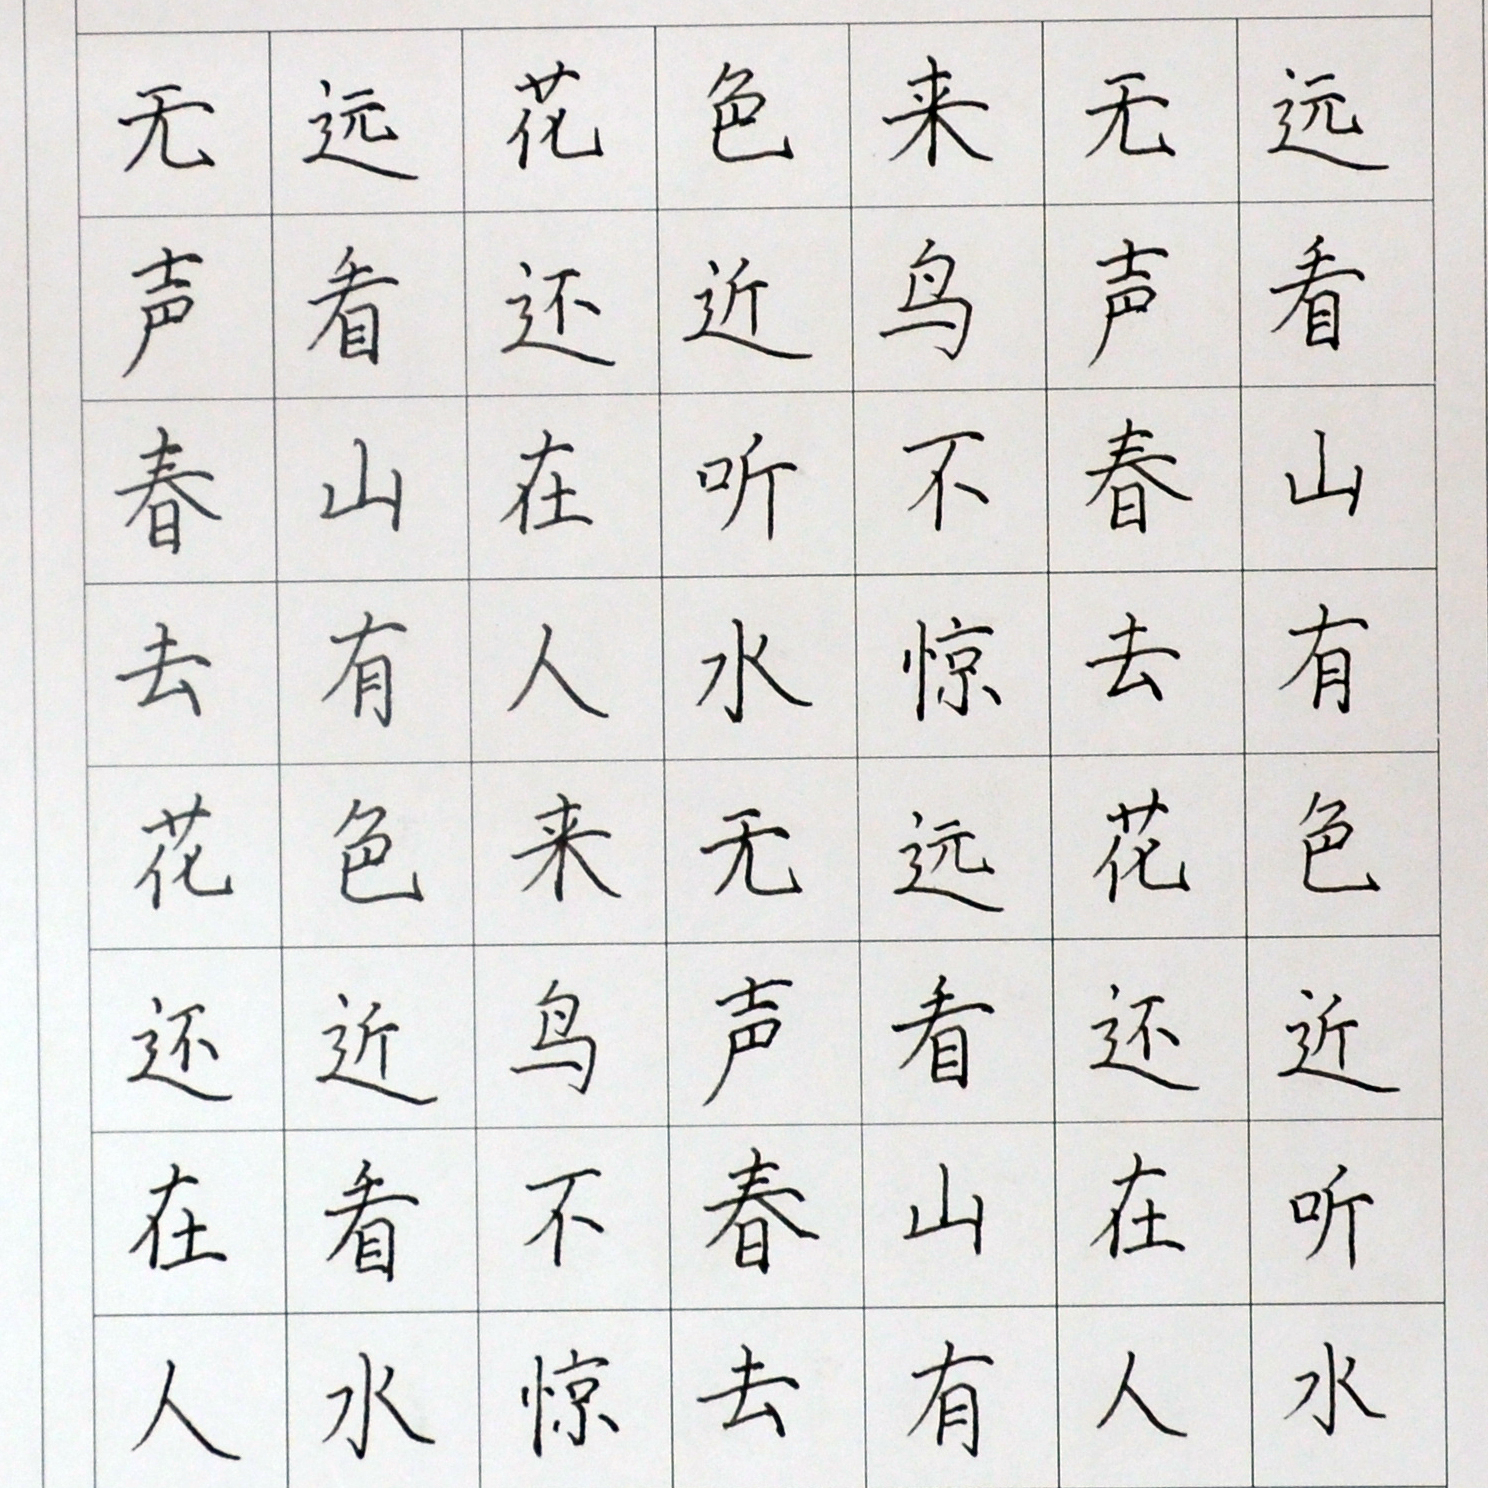 远看山有色近听水
无声春去花还在人
来鸟不惊远看山有
色近听水无声春去
花还在人来鸟不惊
远看山有色近看水
无声春去花还在人